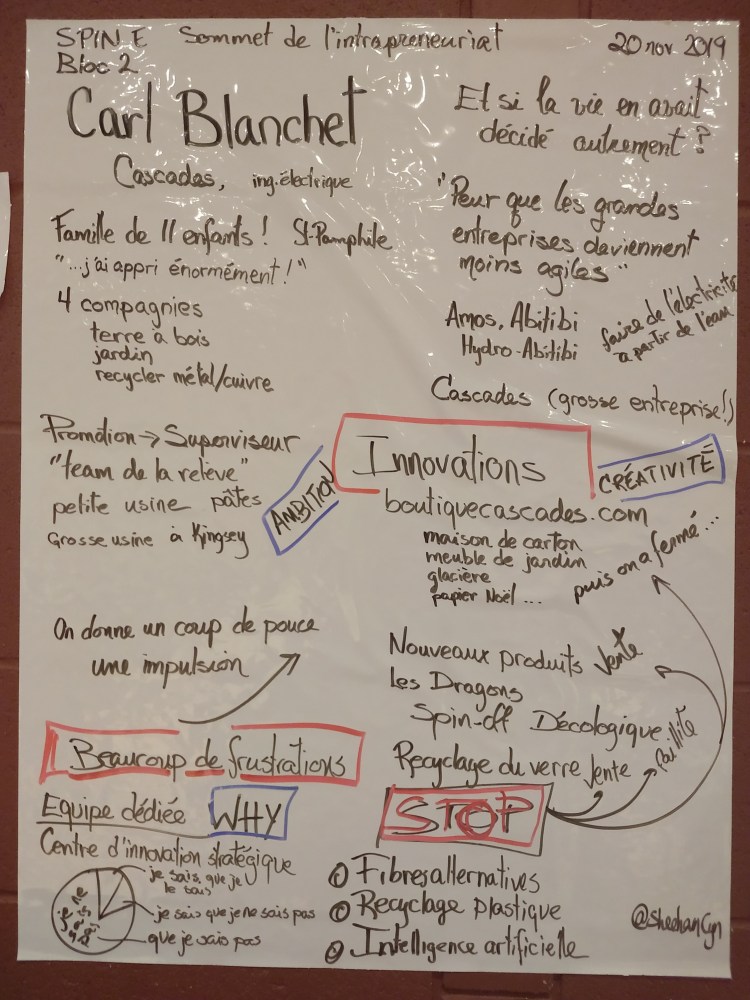 SPIN E Sommet de l'intrapreneuriat 20 nov. 2019
Bloc 2
Carl Blanchet
Cascades, ing. électrique
Famille de 11 enfants ! St-Pamphile
"...j'ai appri énormément !"
4 compagnies
terre à bois
jardin
recycler métal/cuivre
Promotion → Superviseur
"team de la relève"
petite usine pâtes
Grosse usine à Kingsey
AMBITION
On donne un coup de pouce
une impulsion
Beaucoup de frustrations
Equipe dédiée WHY
Centre d'innovation stratégique
je sais que je
le sais
je sais que je ne sais pas
que je sais pas
je ne
Et si la vie en avait
décidé autrement ?
"Peur que les grandes
entreprises deviennent
moins agiles"
Amos, Abitibi
Hydro-Abitibi
faire de l'électricité
à partir de l'eau
Cascades (grosse entreprise!)
Innovations
CRÉATIVITÉ
boutiquecascades.com
maison de carton
meuble de jardin
glacière
papier Noël ...
puis on a fermé...
Nouveaux produits Vente
Les Dragons
Spin-off Décologique
Recyclage du verre Vente
faillite
STOP
① Fibres alternatives
② Recyclage plastique
Intelligence artificielle
@sheehanCyn